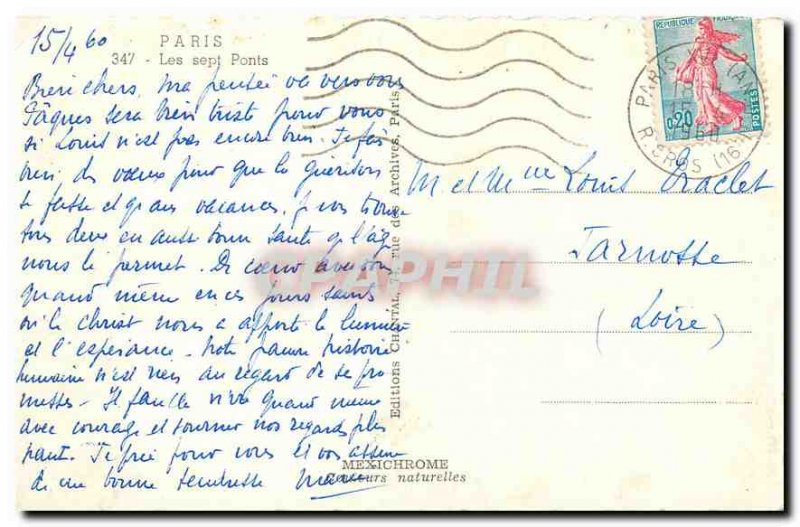 15/4 60
PARIS
347 - Les sept Ponts
Bien chers, ma pensée va vers vous
Pâques sera bien triste pour vous
si Louis n'est pas encore bien. Je fais
bien des vœux pour que la guérison
se fasse et qu'aux vacances, je vous trouve
tous deux en aussi bonne santé q. l'âge
nous le permet. De cœur avec vous
quand même en ces jours saints
où le Christ nous a apporté la lumière
et l'espérance. Notre pauvre histoire
humaine n'est rien au regard de ses pro
messes - Il faut le vivre quand même
avec courage et tourner nos regards plus
haut. Je prie pour vous et vous assure
de ma bonne tendresse
Editions CHANTAL, 74, rue des Archives, Paris
MEXICHROME
Couleurs naturelles
REPUBLIQUE FRANÇAISE
0,20
POSTES
PARIS XVI
15
1960
R. CROS (16
M et Mme Louis
Jarnosse
(Loire)
CPAPHIL